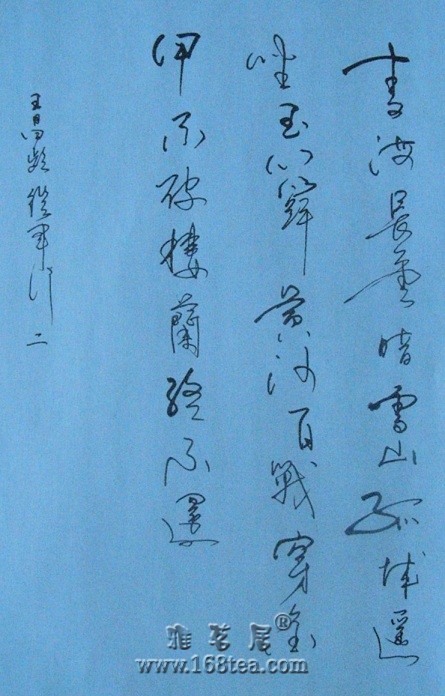 青海長雲暗雪山孤城遥
望玉門關黃沙百戰穿金
甲不破樓蘭終不還
王昌齡 從軍行 二
雅茗居®
www.168tea.com